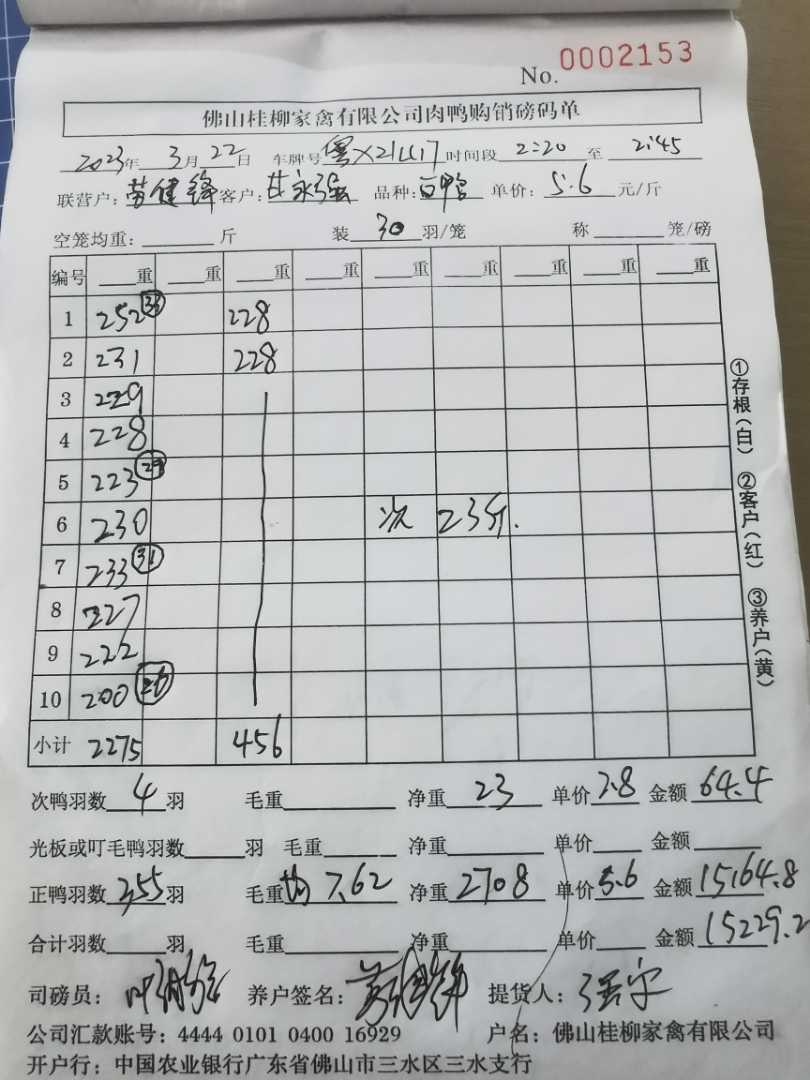 No. 0002153
佛山桂柳家禽有限公司肉鸭购销磅码单
2023年 3月22日 车牌号 粤X21L17 时间段 2:20 至 2:45
联营户: 劳健锋 客户: 甘永强 品种: 单价: 5.6 元/斤
空笼均重: 斤 装 30 羽/笼 称 笼/磅
编号 重 重 重 重 重 重 重 重 重
1 252 33 228
2 231 228
3 229
4 228
5 223 29
6 230 次 23斤.
7 233 31
8 227
9 222
10 200 26
小计 2275 456
次鸭羽数 4 羽 毛重 净重 23 单价 2.8 金额 64.4
光板或叮毛鸭羽数 羽 毛重 净重 单价 金额
正鸭羽数 355 羽 毛重 均7.62 净重 2708 单价 5.6 金额 15164.8
合计羽数 羽 毛重 净重 单价 金额 15229.2
司磅员: 养户签名: 劳健锋 提货人:
公司汇款账号: 4444 0101 0400 16929 户名: 佛山桂柳家禽有限公司
开户行: 中国农业银行广东省佛山市三水区三水支行
①存根(白) ②客户(红) ③养户(黄)